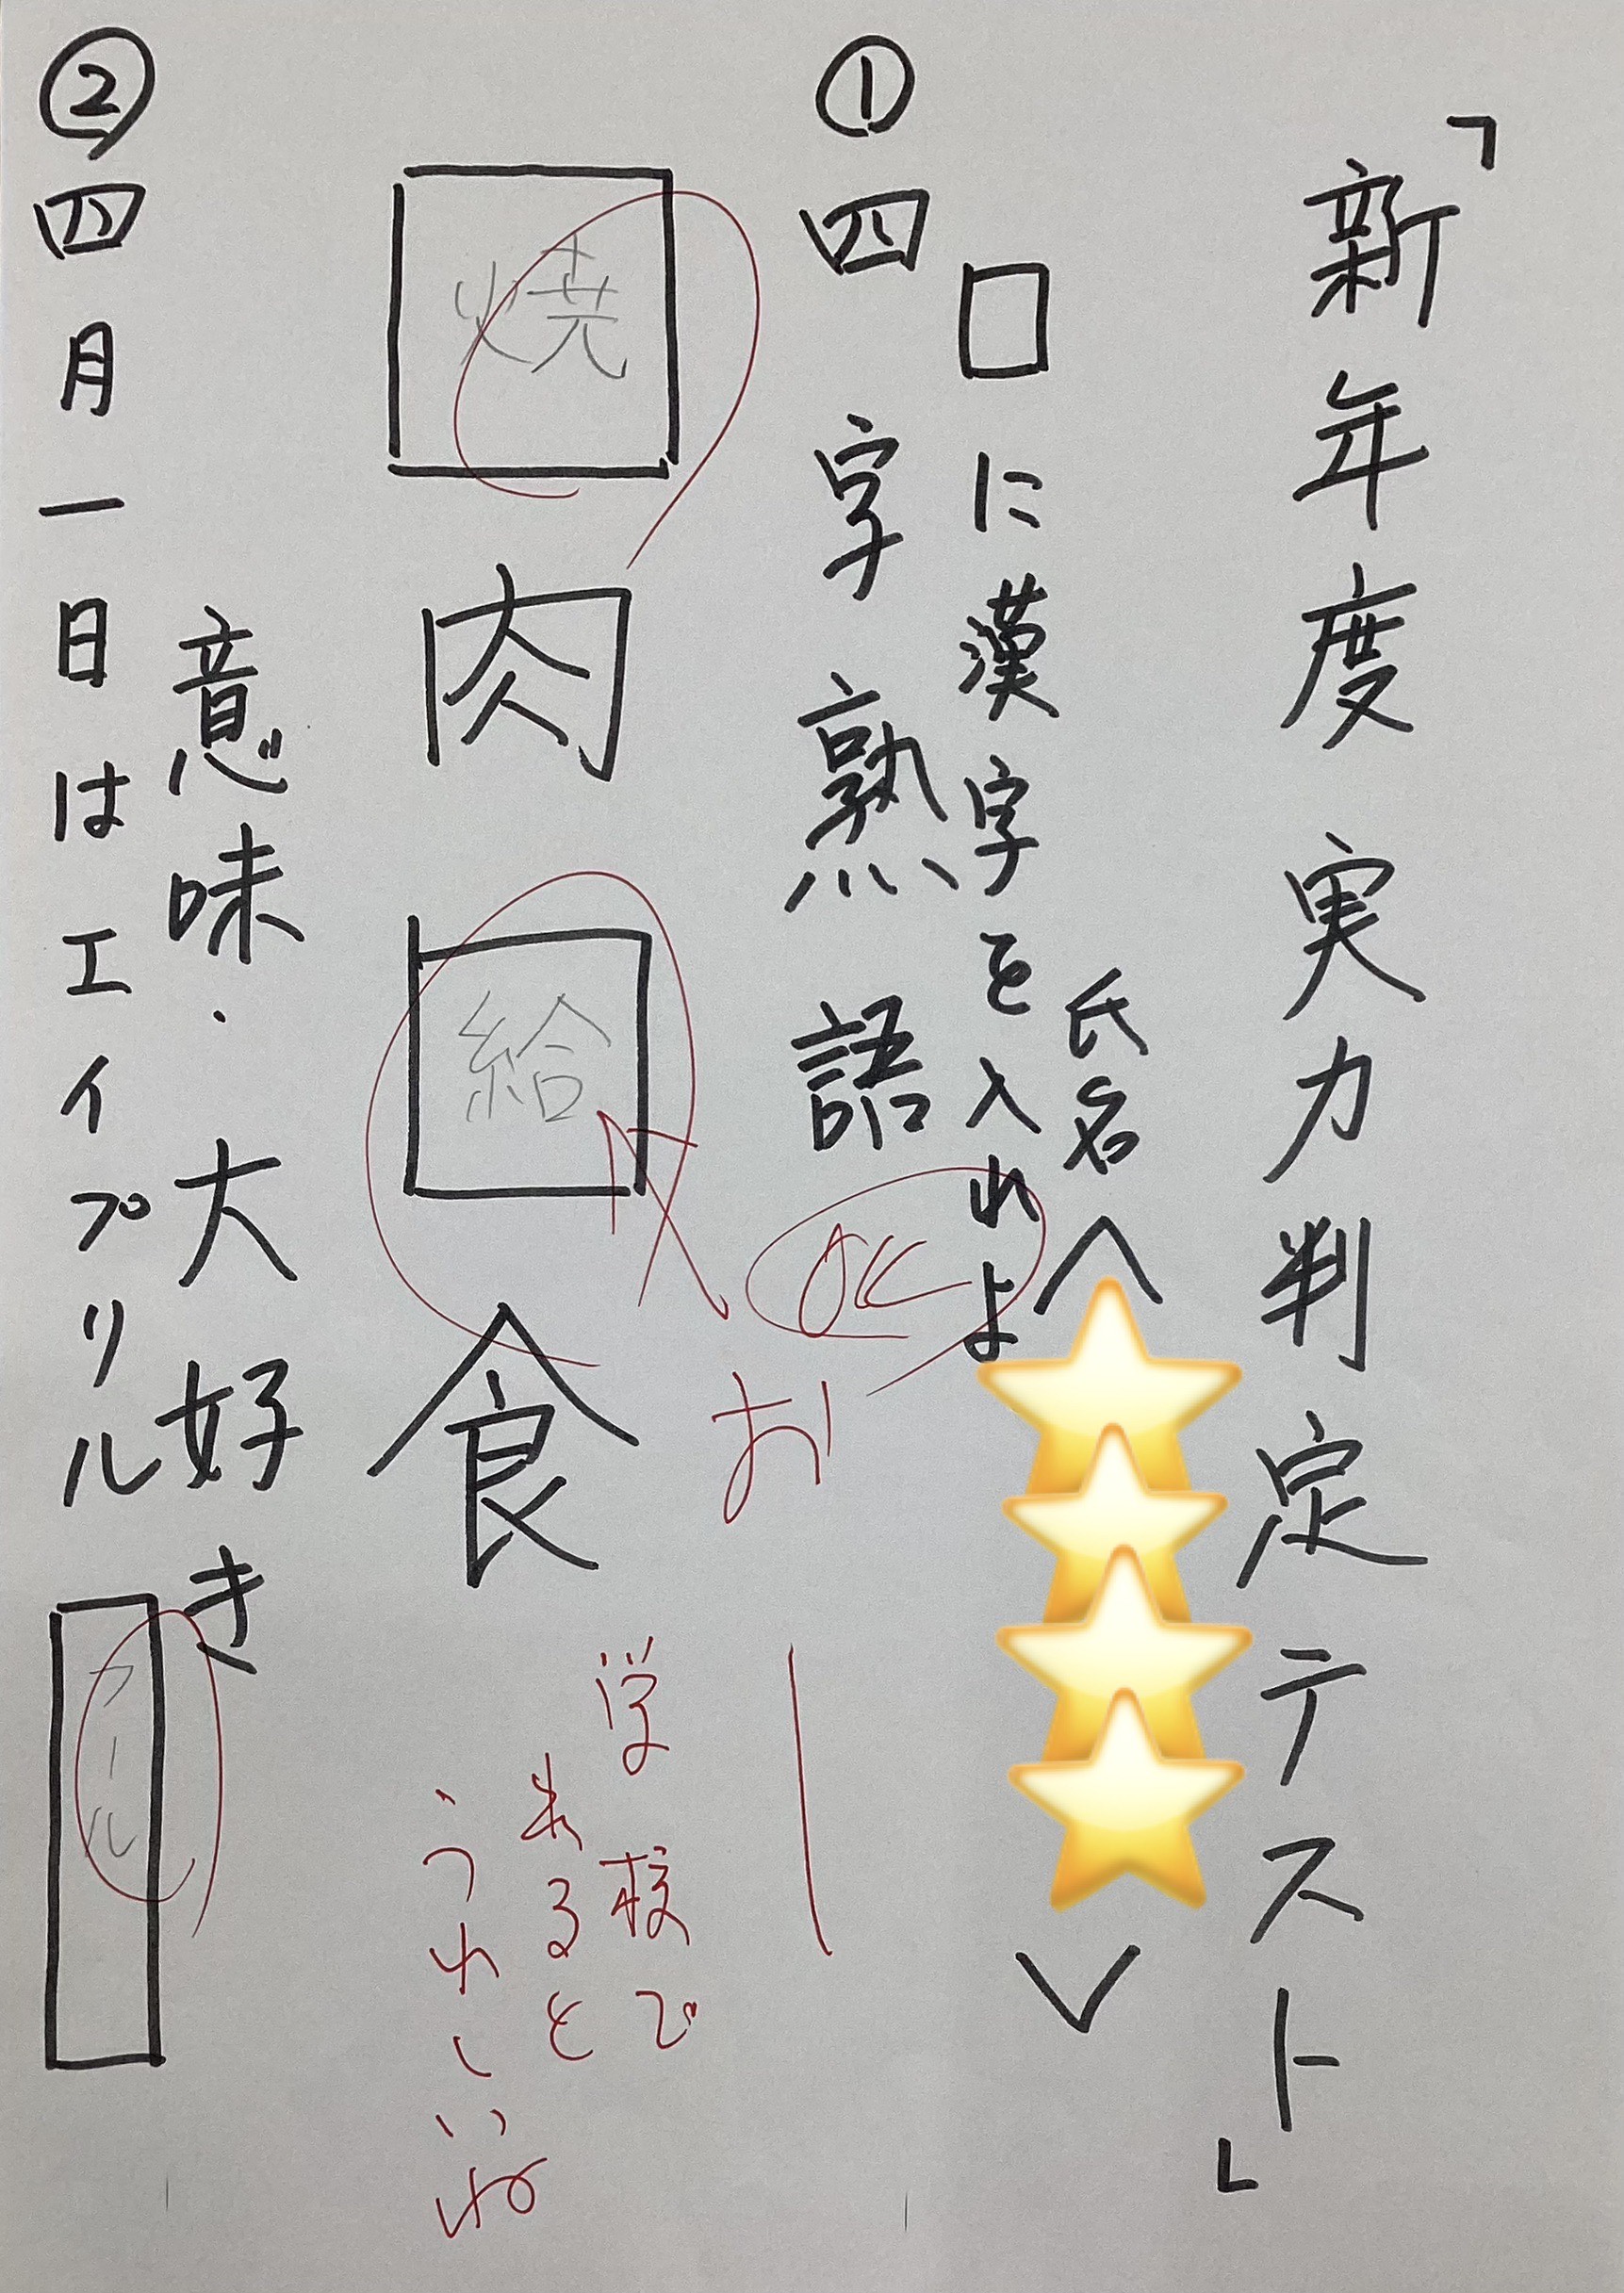 「新年度実力判定テスト」
氏名へ
□に漢字を入れよ
①四字熟語
OK
お
焼肉給食
学校で
出ると
うれしいね
意味・大好き
②四月一日はエイプリルフール